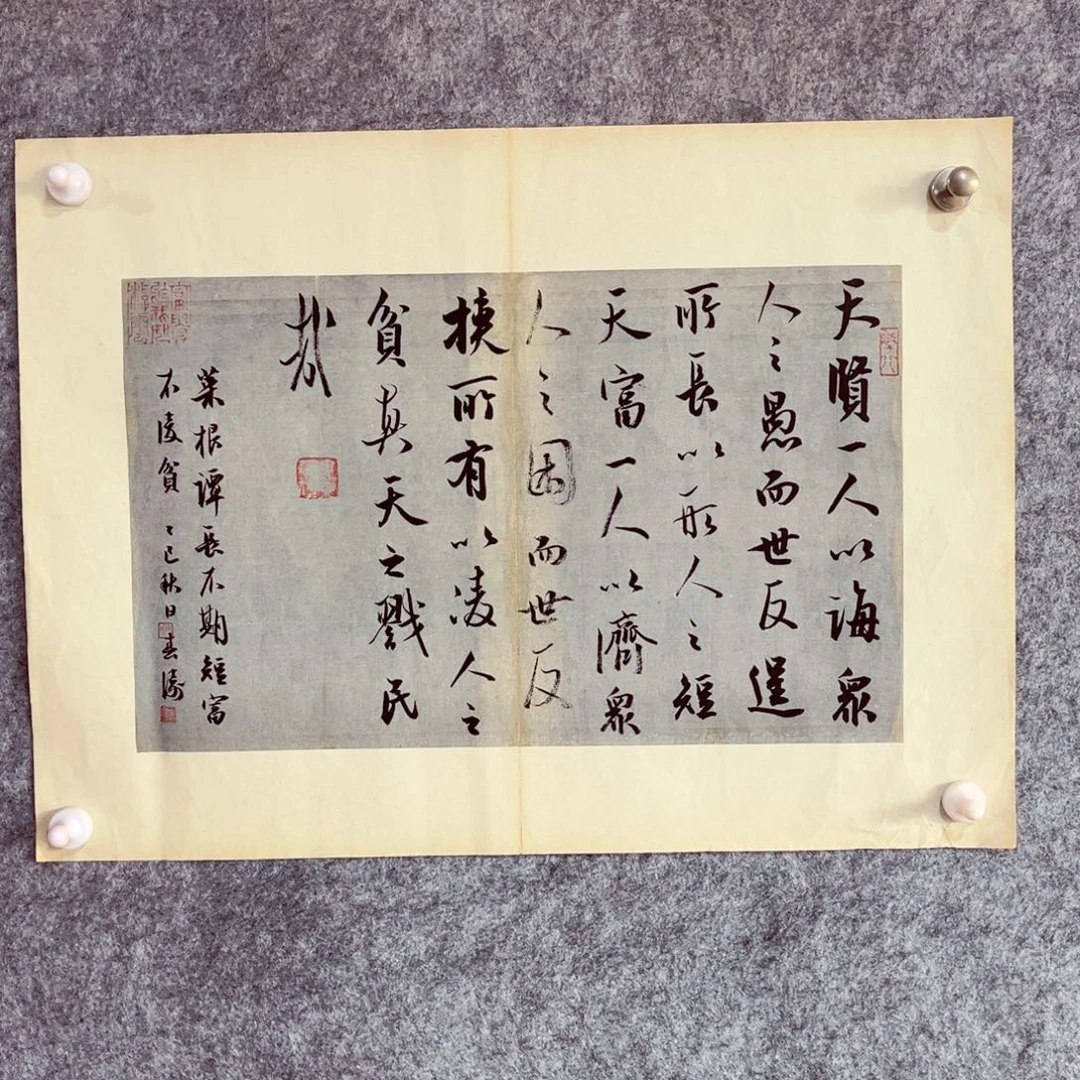 天賢一人以誨眾
人之愚而世反逞
所長以形人之短
天富一人以濟眾
人之困而世反
挾所有以凌人之
貧真天之戮民
哉
菜根谭長不期短富
不凌貧 乙巳秋日 春濤